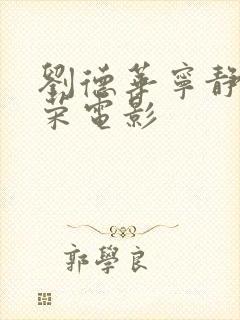 劉德華寧靜
宋電影
郭學良